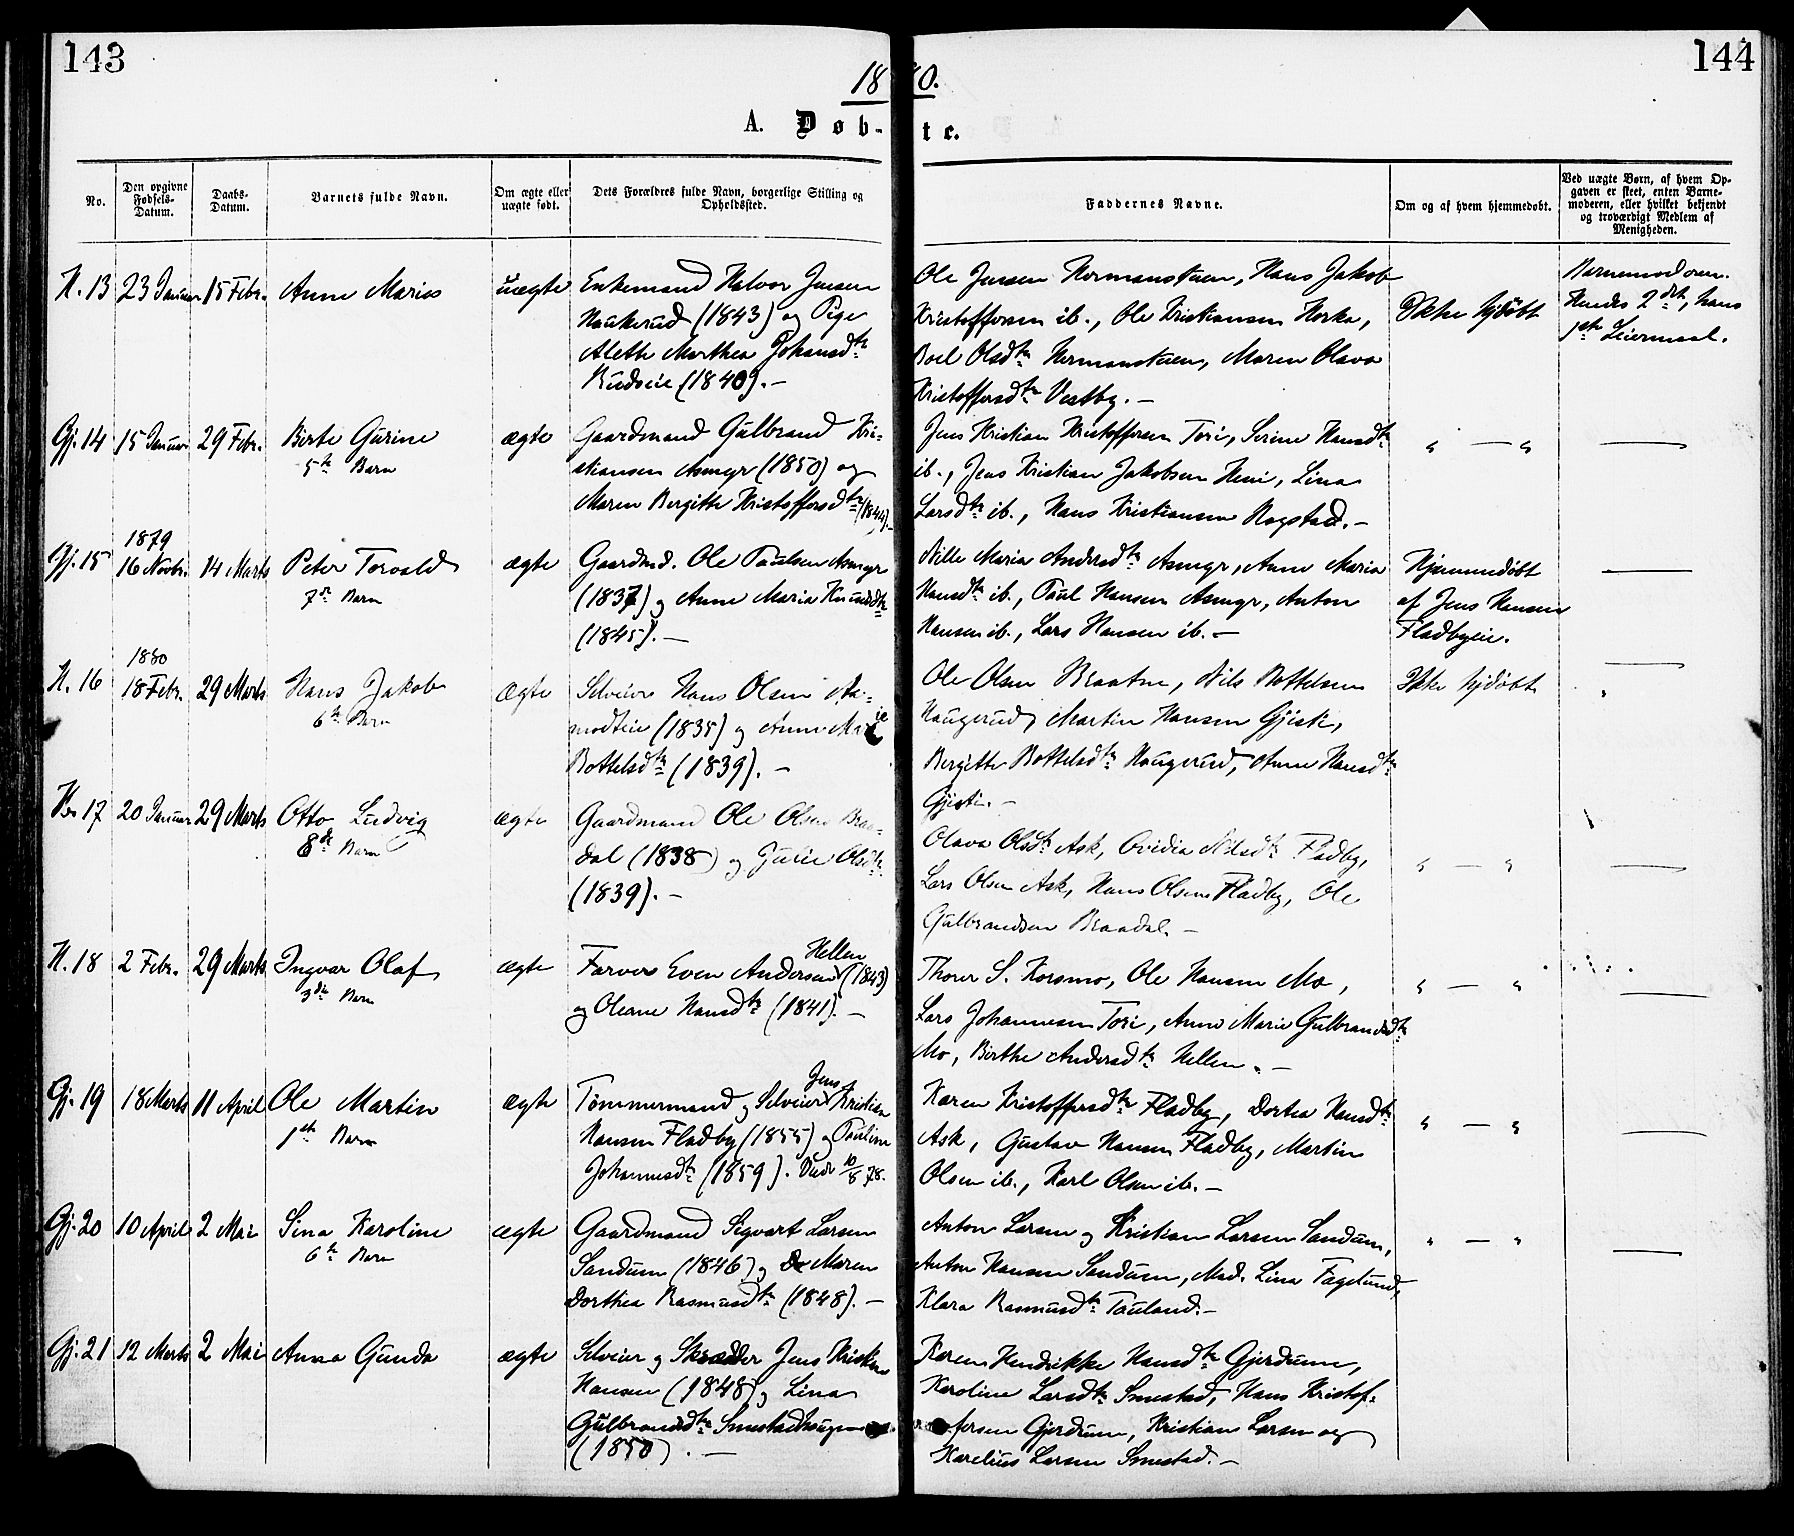 143
144
1880.
A. Døbte.
No.
Den opgivne Fødsels-Datum.
Daabs-Datum.
Barnets fulde Navn.
Om ægte eller uægte født.
Dets Forældres fulde Navn, borgerlige Stilling og Opholdssted.
Faddernes Navne.
Om og af hvem hjemmedøbt.
Ved uægte Børn, af hvem Opgaven er skeet, enten Barnemoderen, eller hvilket bekjendt og troværdigt Medlem af Menigheden.
H. 13 23 Januar 15 Febr. Anne Marie uægte
Enkemand Halvor Jensen
Haukerud (1843) og Pige
Alethe Marthea Johansdtr
Rudseie (1840). —
Ole Jensen Hermanstuen, Hans Jakob
Kristoffersen ib., Ole Kristiansen Horka,
Boel Olsdtr Hermanstuen, Maren Olava
Kristoffersdtr Vestby. —
Ikke hjdøbt
Barnemoderen.
Hendes 2det, hans
1ste Leiermaal.
Gj. 14 15 Januar 29 Febr. Berte Gurine ægte
5te Barn
Gaardmand Gulbrand Kri-
stiansen Asmyr (1850) og
Maren Bergitte Kristoffersdtr (1844). —
Jens Kristian Kristoffersen Tori, Serine Hansdtr
ib., Jens Kristian Jakobsen Heni, Lina
Larsdtr ib., Hans Kristiansen Rogstad. —
" — "
—
Gj. 15 1879
16 Novbr. 14 Marts Peter Torvald ægte
7de Barn
Gaardmd. Ole Paulsen Asmyr
(1837) og Anne Maria Knudsdtr
(1845). —
Nille Maria Andersdtr Asmyr, Anne Maria
Hansdtr ib., Paul Hansen Asmyr, Anton
Hansen ib., Lars Hansen ib. —
Hjemmedøbt
af Jens Hansen
Fladbyeie.
—
H. 16 1880
18 Febr. 29 Marts Hans Jakob ægte
6te Barn
Selveier Hans Olsen Aa-
modteie (1835) og Anne Marie
Bottelsdtr (1839). —
Ole Olsen Braaten, Nils Bottelsen
Haugerud, Martin Hansen Gjesti,
Bergitte Bottelsdtr Haugerud, Anne Hansdtr
Gjesti. —
Ikke hjdøbt
—
17 20 Januar 29 Marts Otto Ludvig ægte
8de Barn
Gaardmand Ole Olsen Braa-
dal (1838) og Julie Olsdtr
(1839). —
Olava Olsdtr Ask, Ovidia Nilsdtr Fladby,
Lars Olsen Ask, Hans Olsen Fladby, Ole
Gulbrandsen Braadal. —
" — "
—
H. 18 2 Febr. 29 Marts Ingvar Olaf ægte
3die Barn
Farver Even Andersen Hellen (1843)
og Oleane Hansdtr (1841). —
Thorer S. Korsmo, Ole Hansen Mo,
Lars Johannesen Tori, Anne Marie Gulbrandsdtr
Mo, Berthe Andersdtr Hellen. —
" — "
—
Gj. 19 18 Marts 11 April Ole Martin ægte
1ste Barn
Tømmermand og Selveier Jens Kristian
Hansen Fladby (1855) og Pauline
Johannesdtr (1859). Viede 10/5 78.
Karen Kristoffersdtr Fladby, Dortea Hansdtr
Ask, Gustav Hansen Fladby, Martin
Olsen ib., Karl Olsen ib. —
" — "
—
Gj. 20 10 April 2 Mai Sina Karoline ægte
6te Barn
Gaardmand Sigvart Larsen
Sandum (1846) og Maren
Dorthea Rasmusdtr (1848). —
Anton Larsen og Kristian Larsen Sandum,
Anton Hansen Sandum, Mad. Lina Fagelund,
Klara Rasmusdtr Tauland. —
" — "
—
Gj. 21 12 Marts 2 Mai Anna Gunda ægte
Selveier og Skrædder Jens Kristian
Hansen (1848) og Lina
Gulbrandsdtr Smestadhaugen
(1850). —
Karen Hendrikke Hansdtr Gjerdrum,
Karoline Larsdtr Smestad, Hans Kristof-
fersen Gjerdrum, Kristian Larsen og
Karelius Larsen Smestad. —